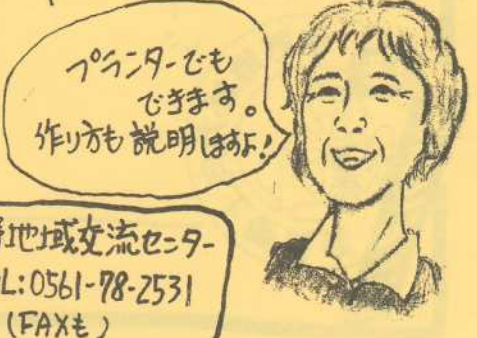 プランターでも
できます。
作り方も説明しますよ!
地域交流センター
L:0561-78-2531
(FAXも)